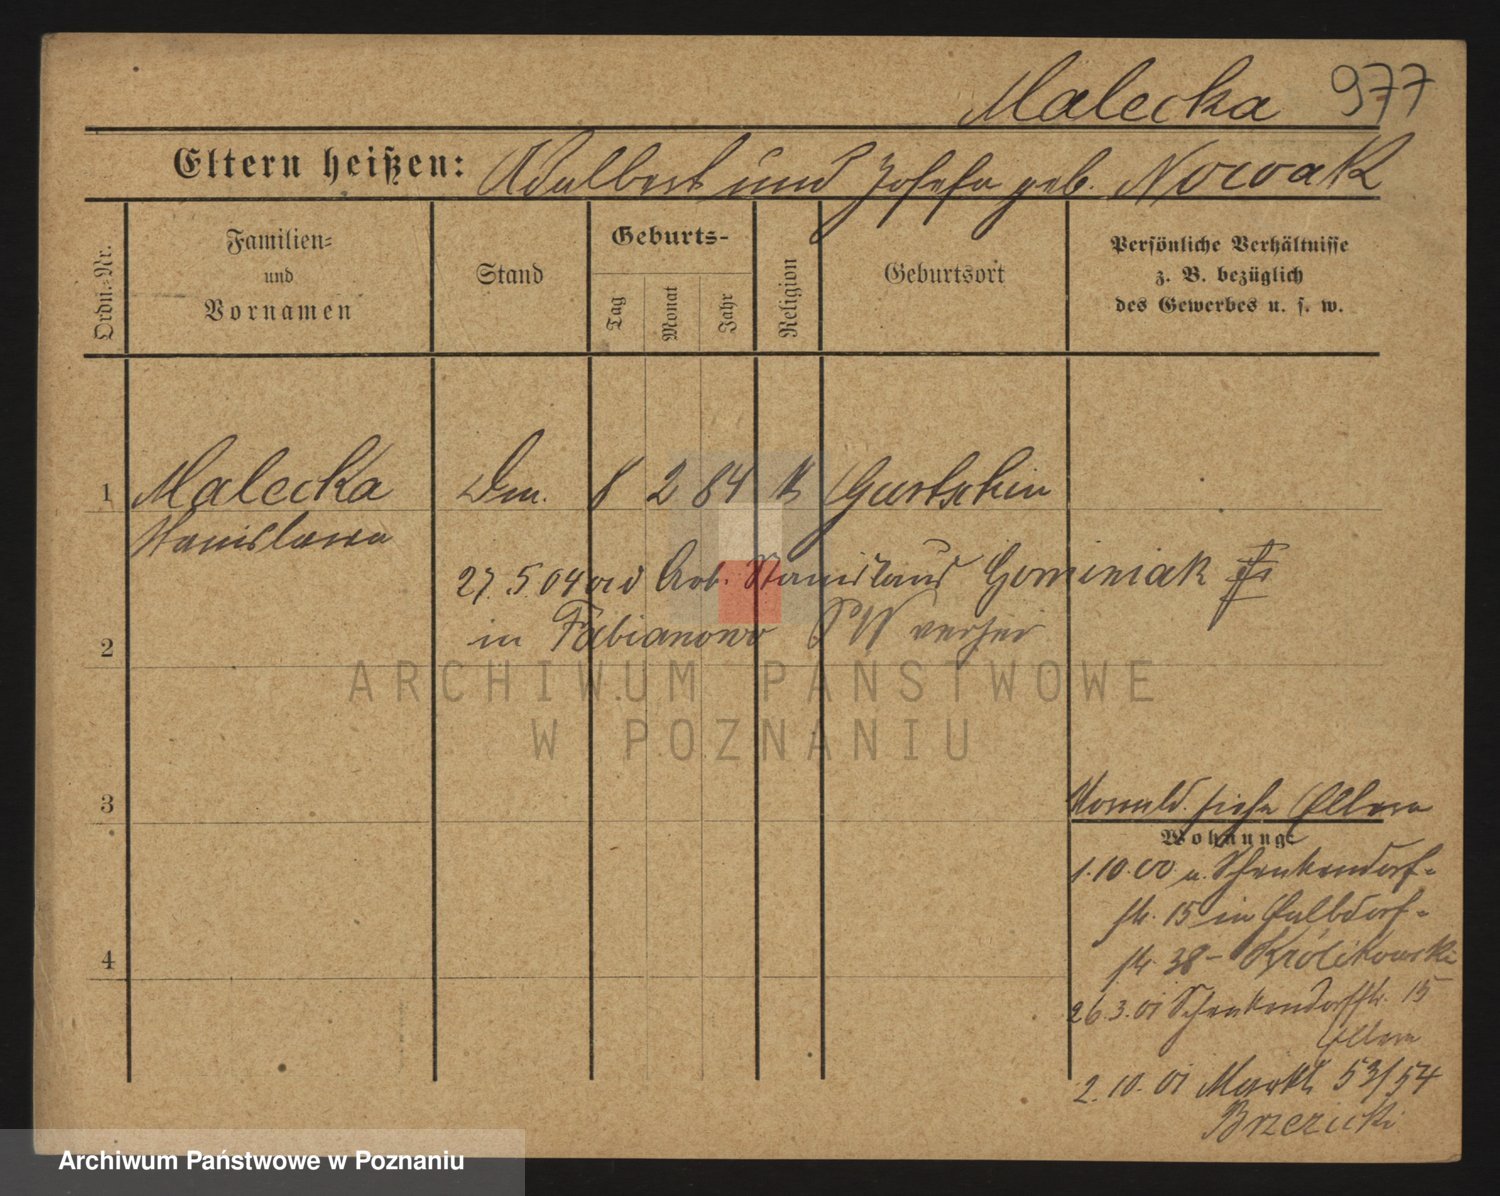 Malecka 977
Eltern heißen: Adalbert und Josefa geb. Nowak
Ordn.-Nr.
Familien-
und
Vornamen
Stand
Geburts-
Tag
Monat
Jahr
Religion
Geburtsort
Persönliche Verhältnisse
z. B. bezüglich
des Gewerbes u. s. w.
1 Malecka 8 2 84 k Gurtschin
Stanislawa
27.5.04 Arb. Stanislaus Gominiak
in Fabianowo verhei
2
ARCHIWUM PAŃSTWOWE
W POZNANIU
3
siehe Eltern
Wohnung:
1.10.00 n. Schenkendorf-
str. 15 in Halbdorf-
str. 38 - Królikowski
4
26.3.01 Schenkendorfstr. 15
Eltern
2.10.01 Markt 53/54
Brzezicki
Archiwum Państwowe w Poznaniu